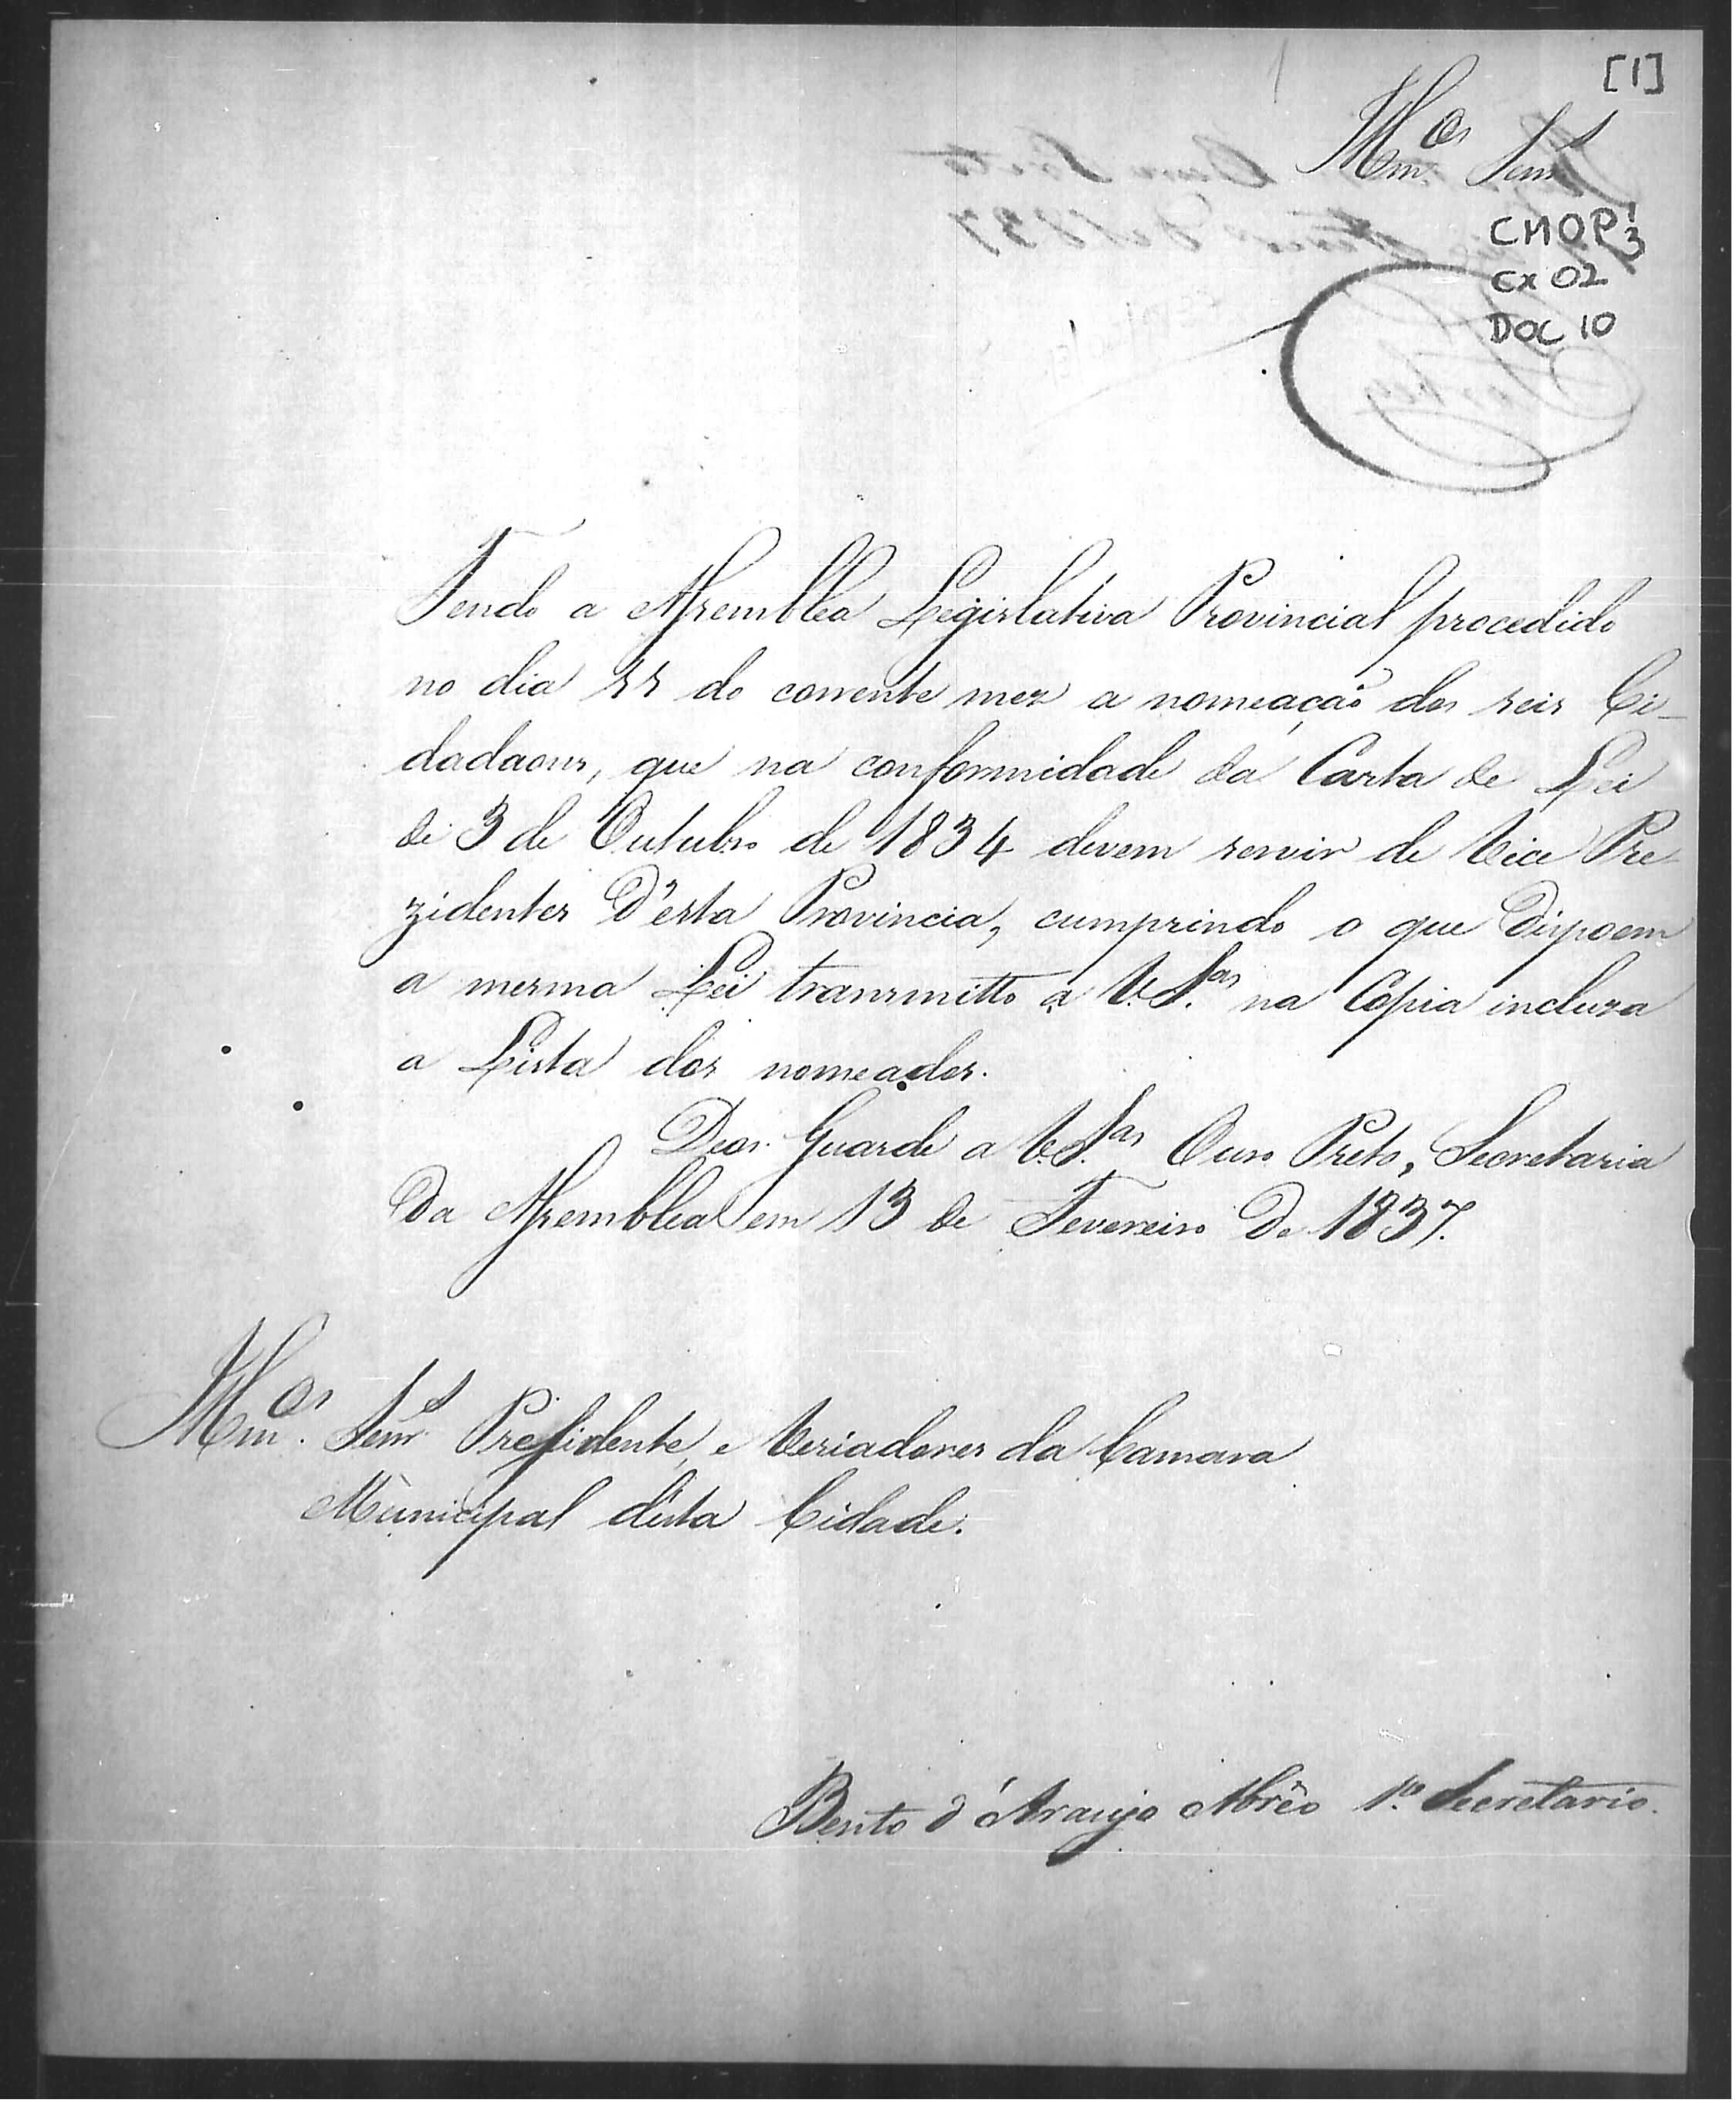 [1]
Illmos Senrs
CMOP 1/3
CX 02
DOC 10
Tendo a Assemblea Legislativa Provincial procedido
no dia 11 do corrente mez a nomeação dos seis Ci-
dadaons, que na conformidade da Carta de Lei
de 3 de Outubro de 1834 devem servir de Vice Pre-
zidentes d'esta Provincia, cumprindo o que dispoem
a mesma Lei transmitto a V.Sas na Copia incluza
a Lista dos nomeados.
Deos Guarde a V.Sas Ouro Preto, Secretaria
da Assemblea em 13 de Fevereiro de 1837.
Illmos Senrs Presidente, e Veriadores da Camara
Municipal d'esta Cidade.
Bento d'Araujo Abrêo 1º Secretario.